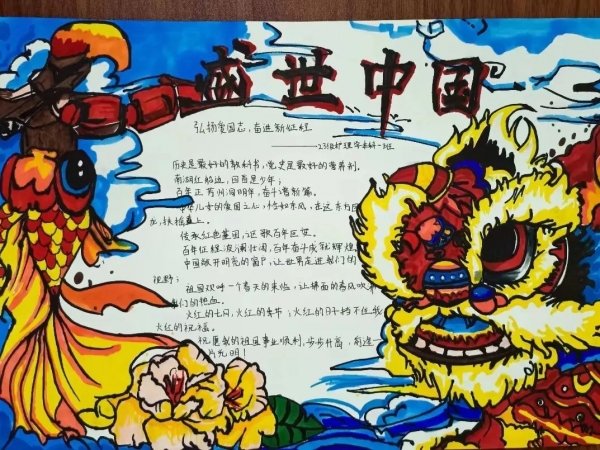 盛世中国
弘扬爱国志,奋进新征程
——23级护理学本科一班
历史是最好的教科书,党史是最好的营养剂。
南湖红船边,回首是少年;
百年正芳州,回明年,奋斗谱新篇。
中华儿女的爱国之心,恰如东风,在这东方
龙,扶摇直上。
传承红色基因,讴歌百年巨变。
百年征程波澜壮阔,百年奋斗成就辉煌
中国敞开明亮的窗户,让世界走进我们的
视野;
祖国欢呼一个春天的来临,让拂面的春风吹
我们的热血。
火红的七月,火红的季节;火红的日子挡不住我
火红的祝福。
祝愿我的祖国事业顺利,步步升高,前途一
片光明!